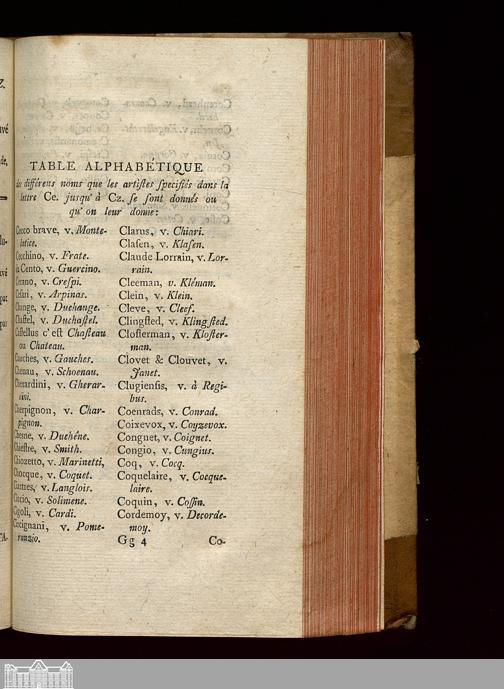 TABLE ALPHABÉTIQUE
des différens noms que les artistes specifiés dans la
lettre Ce. jusqu'à Cz. se sont donnés ou
qu'on leur donne:
Cecco brave, v. Monte-
latice.
Cecchino, v. Frate.
da Cento, v. Guercino.
Cerano, v. Crespi.
Cesari, v. Arpinas.
Change, v. Duchange.
Chastel, v. Duchastel.
Castellus c'est Chasteau
ou Chateau.
Gauches, v. Gauches.
Chenau, v. Schoenau.
Cherardini, v. Gherar-
dini.
Cherpignon, v. Char-
pignon.
Chesne, v. Duchêne.
v. Smith.
Chiozetto, v. Marinetti,
Chocque, v. Coquet.
v. Langlois.
v. Solimene.
Cigoli, v. Cardi.
Circignani, v. Pome-
ranzio.
Clarus, v. Chiari.
Clasen, v. Klasen.
Claude Lorrain, v. Lor-
rain.
Cleeman, v. Kléman.
Clein, v. Klein.
Cleve, v. Cleef.
Clingsted, v. Klingsted.
Closterman, v. Kloster-
man.
Clovet & Clouvet, v.
Janet.
Clugiensis, v. à Regi-
bus.
Coenrads, v. Conrad.
Coixevox, v. Coyzevox.
Congnet, v. Coignet.
Congio, v. Cungius.
Coq, v. Cocq.
Coquelaire, v. Cocque-
laire.
Coquin, v. Cossin.
Cordemoy, v. Decorde-
moy.
Gg 4 Co-